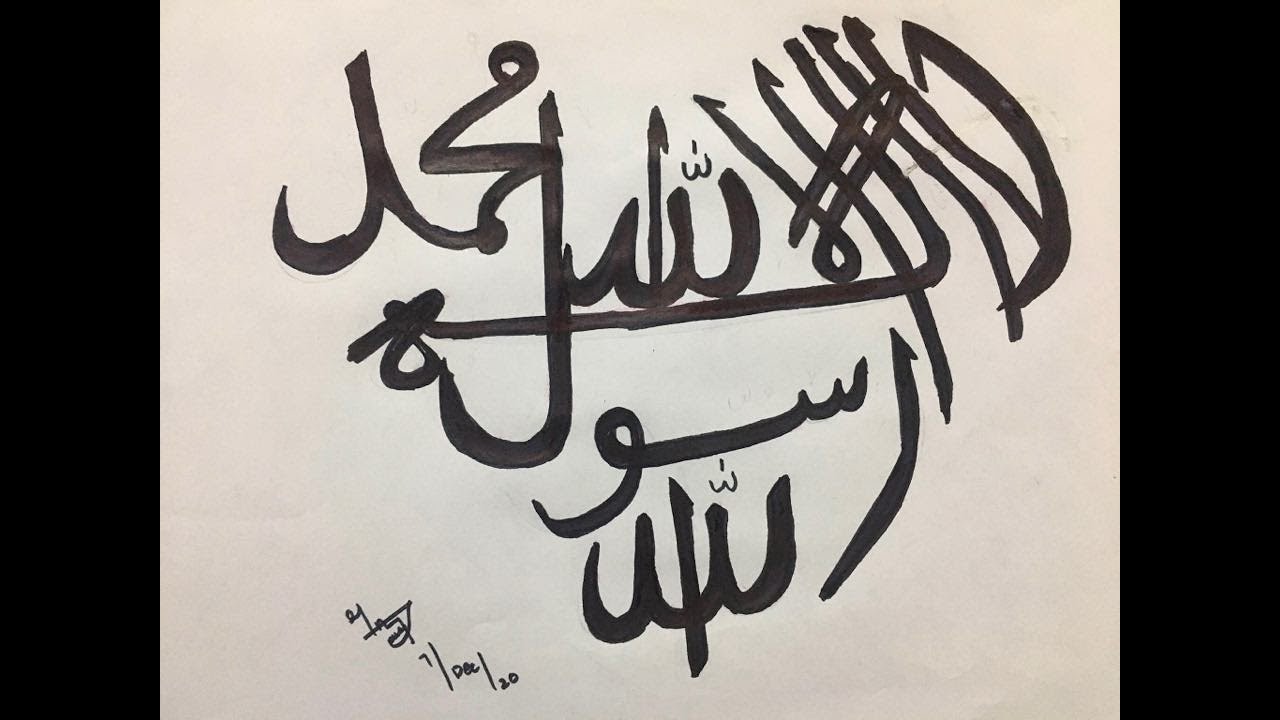 لا إله إلا الله محمد
رسول
الله
7/DEC/20